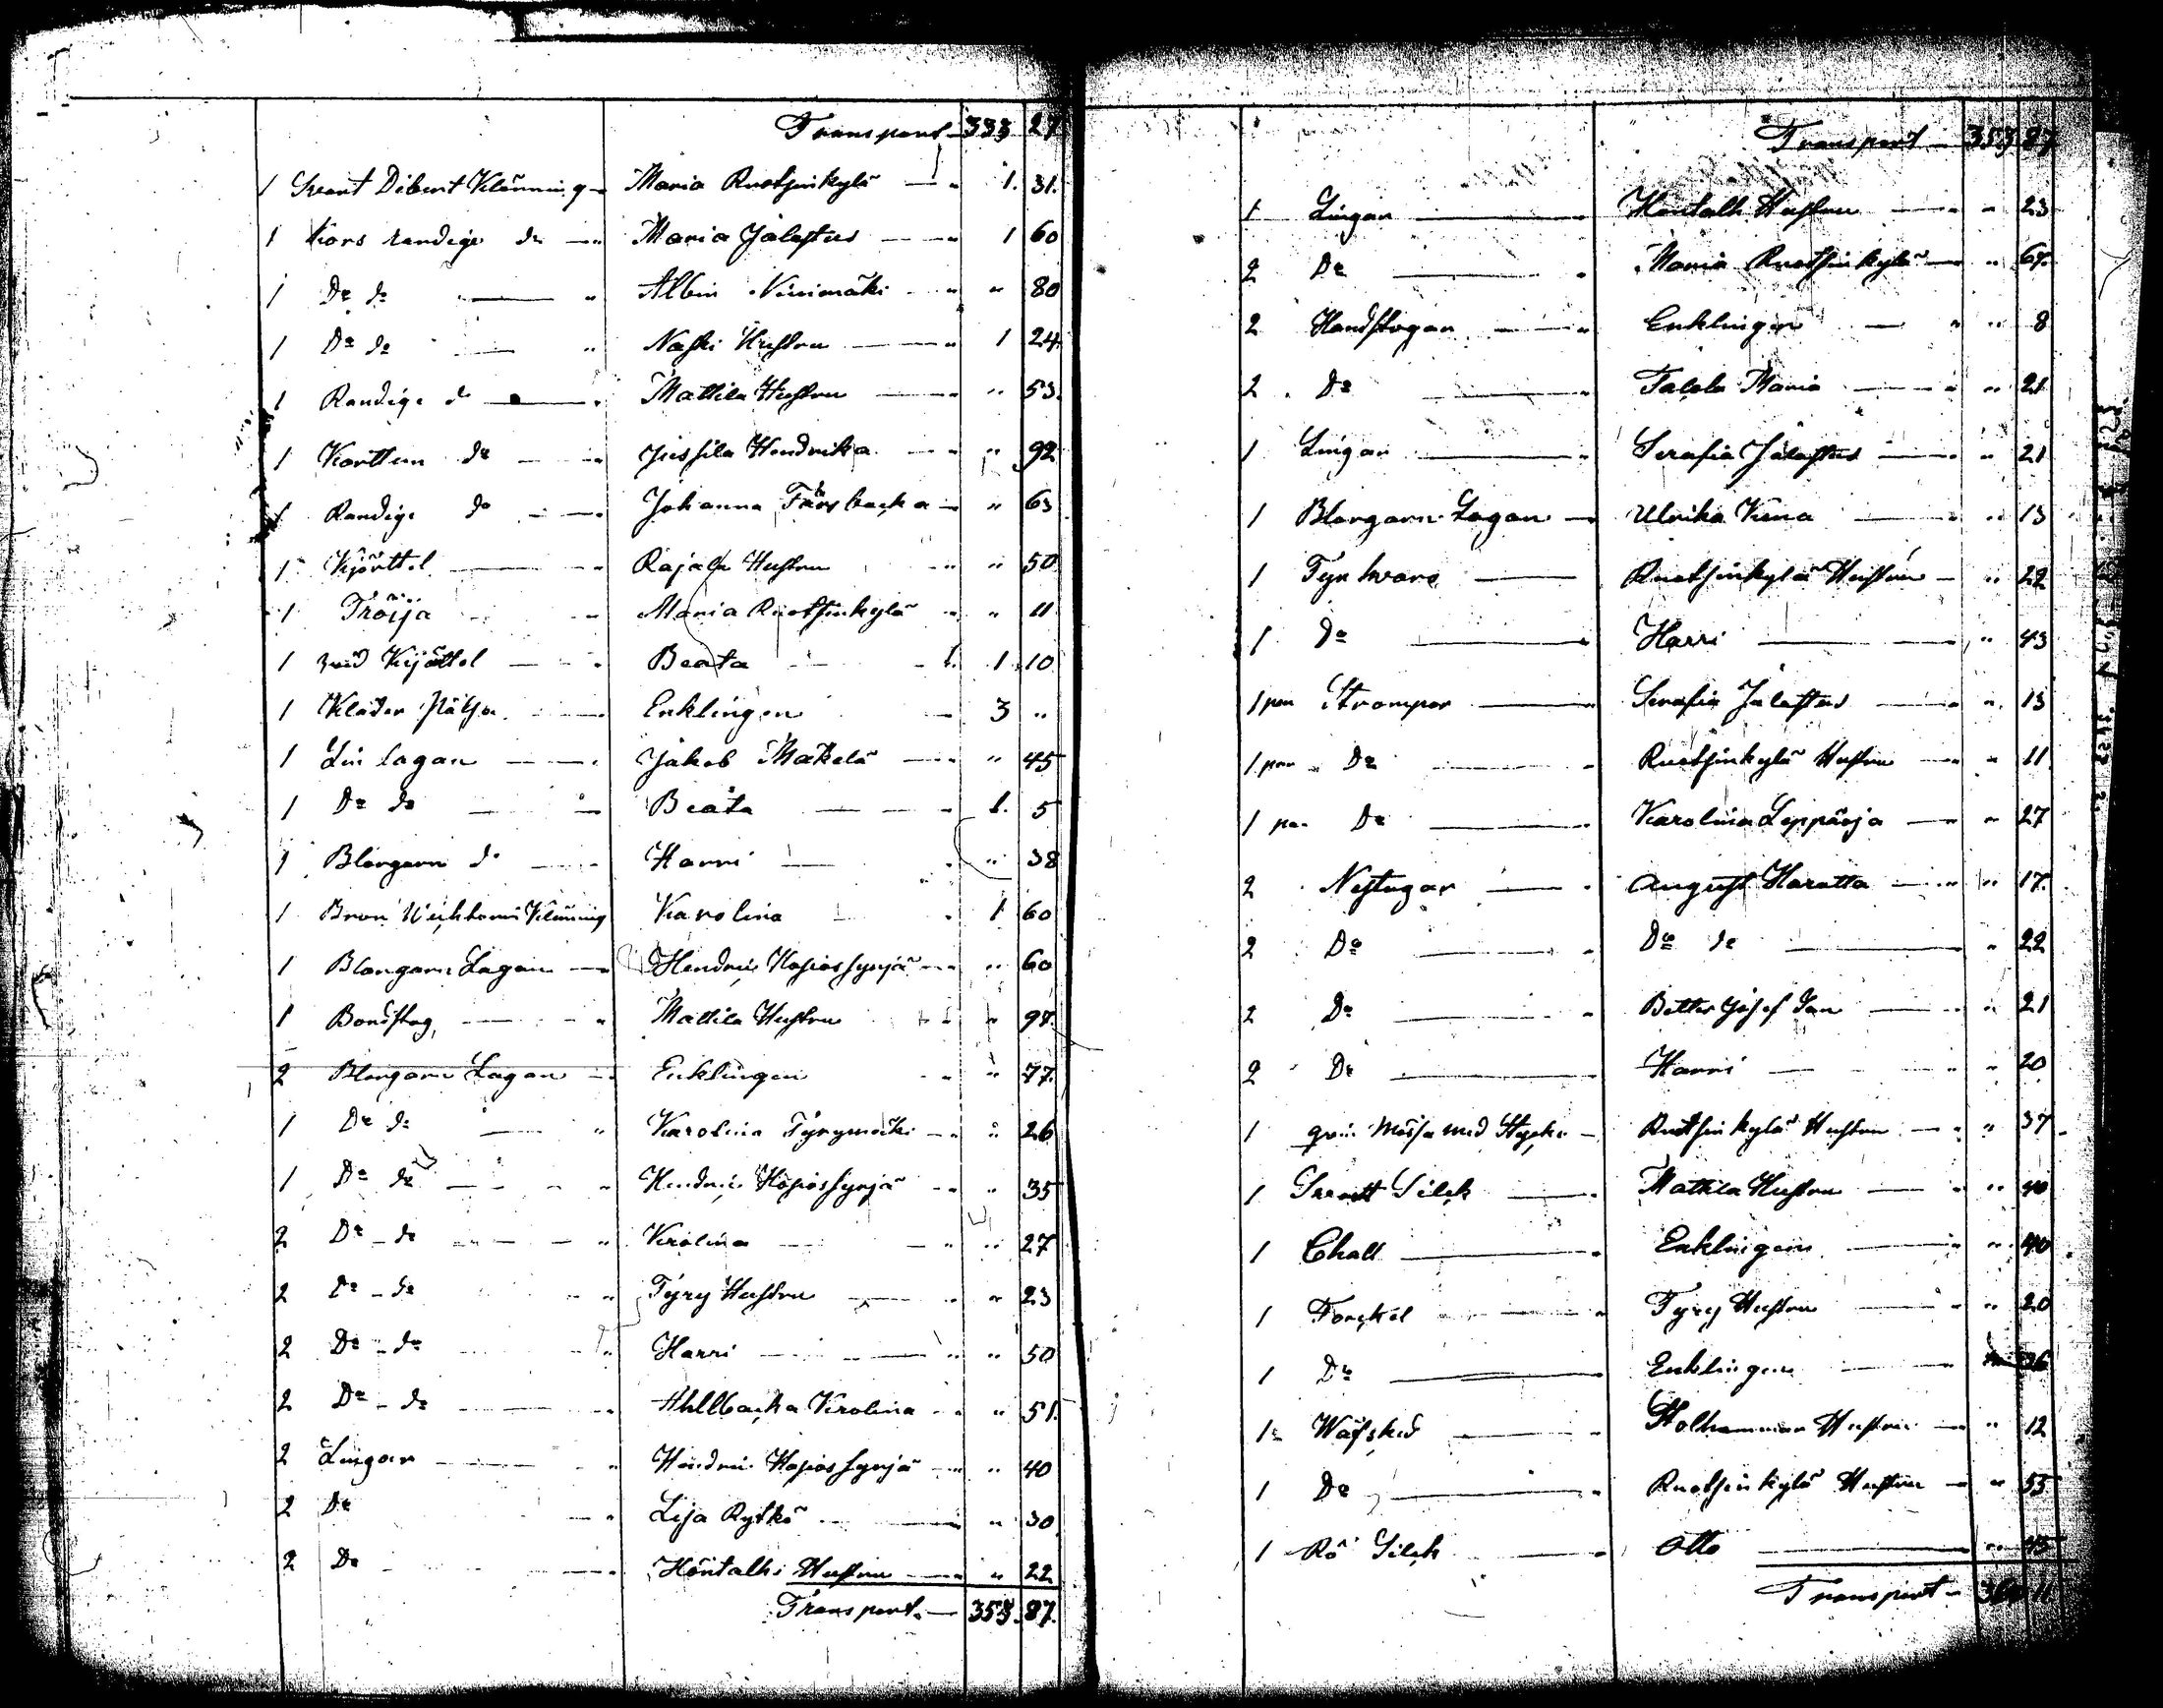 Transport 333 27
1 Svart Dibert Klänning Maria Ruotsinkylä 1. 31.
1 Kors randige do Maria Jalastus 1 60
1 Do do Albin Niinimäki " 80
1 Do do Naski Hustru 1 24
1 Randige do Mattila Hustru " 53.
1 Korttun do Jussila Hendrika " 92
1 Randige do Johanna Fårsbacka " 63
1 Kjörttel Rajala Hustru " 50
1 Tröija Maria Ruotsinkylä " 11
1 Kijöttel Beata 1 10
1 Kläder Enklingen 3 "
1 Lin lagan Jakob Mäkelä " 45
1 Do do Beata 1. 5
1 Blårgarn do Harri " 38
1 Klänning Karolina 1 60
1 Blångarn Lagan Hendric Hopiossyrjä " 60
1 Bordstog Mattila Hustru " 97.
2 Blårgarn Lagan Enklingen " 77.
1 Do do Karolina Tyrymäki " 26
1 Do do Hendric Hopiossyrjä " 35
2 Do do Krolina " 27
2 Do do Tyry Hustru " 23
2 Do do Harri " 50
2 Do do Ahllbacka Krolina " 51.
2 Lingar Hendric Hopiossyrjä " 40
2 Do Lisa Rytkö " 30
2 Do Höntalhi Hustru " 22
Transport 353. 87.
Transport 353 87
1 Lingan Hustru " 23
2 Do Maria Ruotsinkylä " 67.
2 Handstogan Enklingen " 8
2 Do Talala Maria " 21
1 Lingan Serafia Jalastus " 21
1 Blorgarn Lagan Ulrika " 13
1 Tyn kvars Ruotsinkylä Hustru " 22
1 Do Harri " 43
1 par Strompor Serafia Jalastus " 13
1 par Do Ruotsinkylä Hustru " 11
1 par Do Karolina Leppäoja " 27
2 Nestugar August Haratta " 17.
2 Do Do do " 22
2 Do Josef " 21
2 Do Harri " 20
1 mössa med Ruotsinkylä Hustru " 37
1 Svart Silck Mattila Hustru " 40
1 Chall Enklingen " 40
1 Forckel Tyry Hustru " 20
1 Do Enklingen 26
1 Wäfsked Hustru " 12
1 Do Ruotsinkylä Hustru " 55
1 Rö Silck Otto " 45
Transport 11